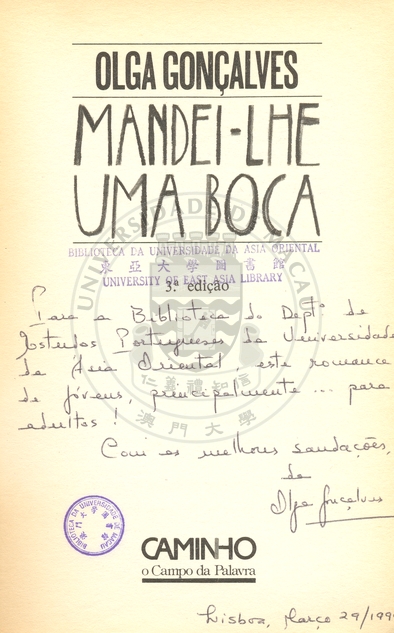 OLGA GONÇALVES
MANDEI-LHE
UMA BOCA
BIBLIOTECA DA UNIVERSIDADE DA ASIA ORIENTAL
東亞大學圖書館
UNIVERSITY OF EAST ASIA LIBRARY
3.ª edição
Para a Biblioteca do Deptº de
Estudos Portugueses da Universidade
da Ásia Oriental, este romance
de jovens, principalmente ... para
adultos!
Com as melhores saudações,
da
Olga Gonçalves
UNIVERSIDADE DE MACAU
仁義禮知信
澳門大學
BIBLIOTECA DA UNIVERSIDADE DE MACAU
CAMINHO
o Campo da Palavra
Lisboa, Março 29/199